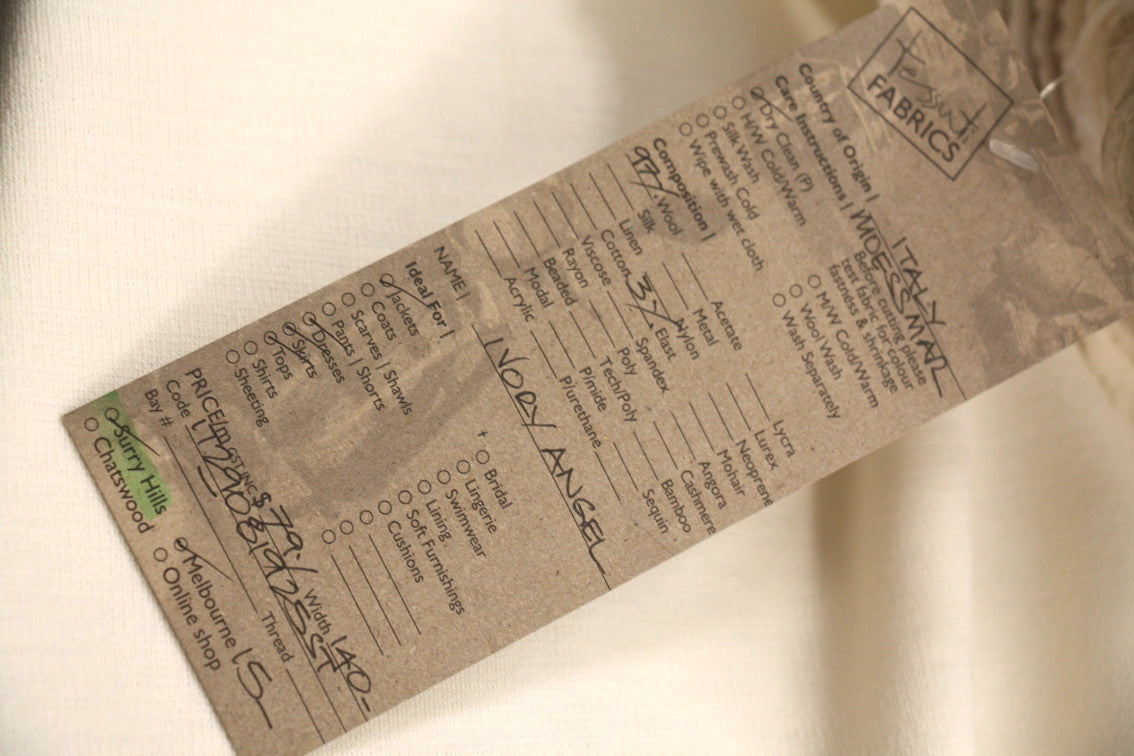 Tessuti
FABRICS
Country of Origin | ITALY
Care Instructions | MDESSMAR
Dry Clean (P)
H/W Cold/Warm
Silk Wash
Prewash Cold
Wipe with wet cloth
Before cutting please
test fabric for colour
fastness & shrinkage
M/W Cold/Warm
Wool Wash
Wash Separately
Composition |
97% Wool
Silk
Linen
Cotton
Viscose
Rayon
Beaded
Modal
Acrylic
Acetate
Metal
Nylon
3% Elast
Spandex
Poly
Tech/Poly
P/mide
P/urethane
Lycra
Lurex
Neoprene
Mohair
Angora
Cashmere
Bamboo
Sequin
NAME | IVORY ANGEL
Ideal For |
Jackets
Coats
Scarves | Shawls
Pants | Shorts
Dresses
Skirts
Tops
Shirts
Sheeting
Bridal
Lingerie
Swimwear
Lining
Soft Furnishings
Cushions
PRICE/m $79.- Width 140-
Code
Bay # Thread
Surry Hills
Chatswood
Melbourne 15
Online shop